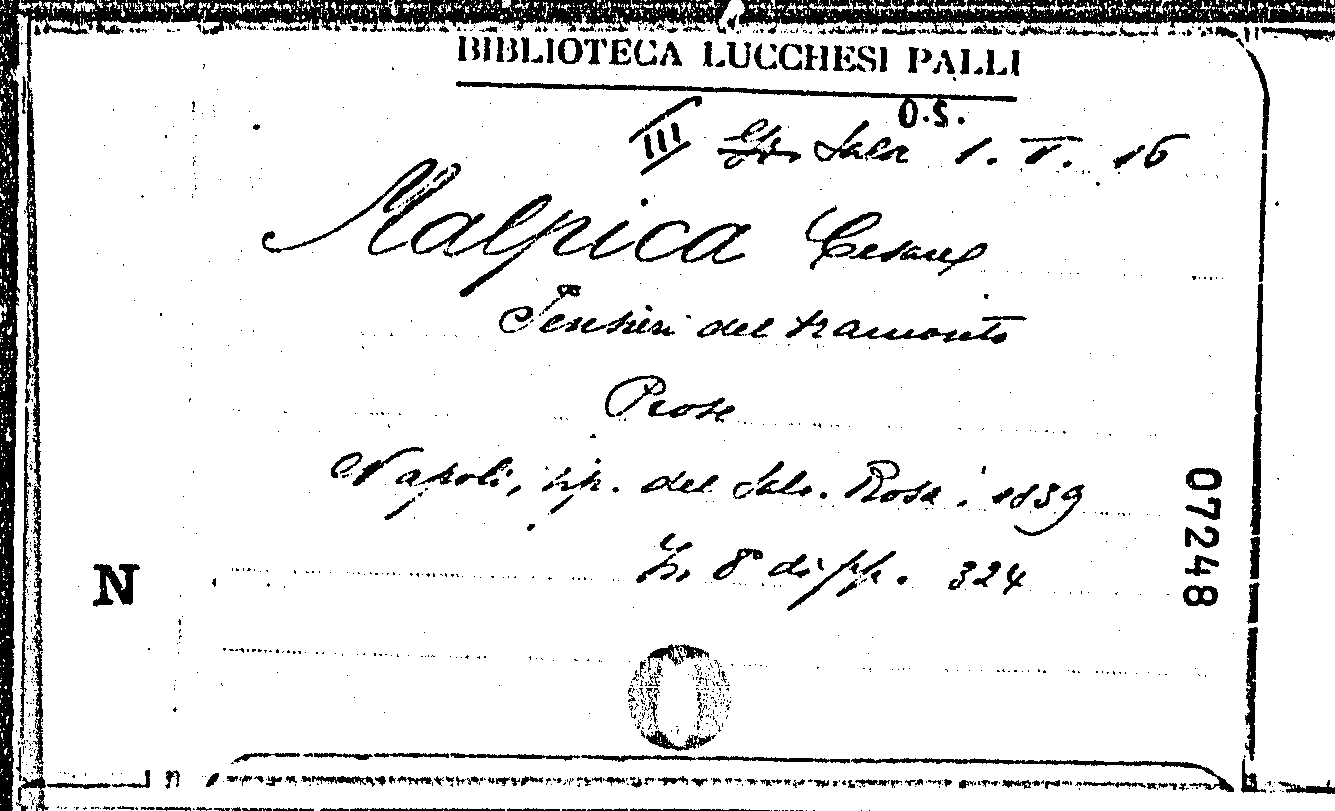 BIBLIOTECA LUCCHESI PALLI
O.S.
III Gr. Sala 1. V. 16
Malpica Cesare
Pensieri del tramonto
Prose
Napoli, tip. del Salv. Rosa, 1839
In 8° di pp. 324
07248
N